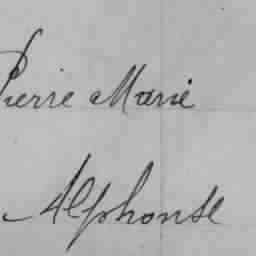 Pierre Marie
Alphonse